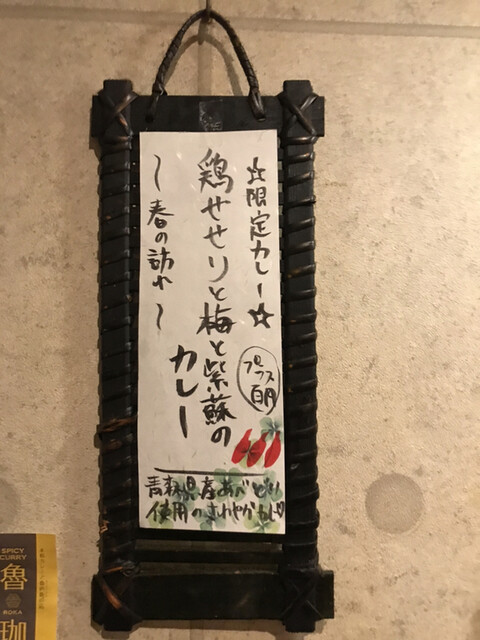 ☆限定カレー☆
鶏せせりと梅と紫蘇の
カレー
プラス
百円
〜春の訪れ〜
青森県産あべどり
使用のさわやかカレー
SPICY
CURRY
魯
ROKA
珈